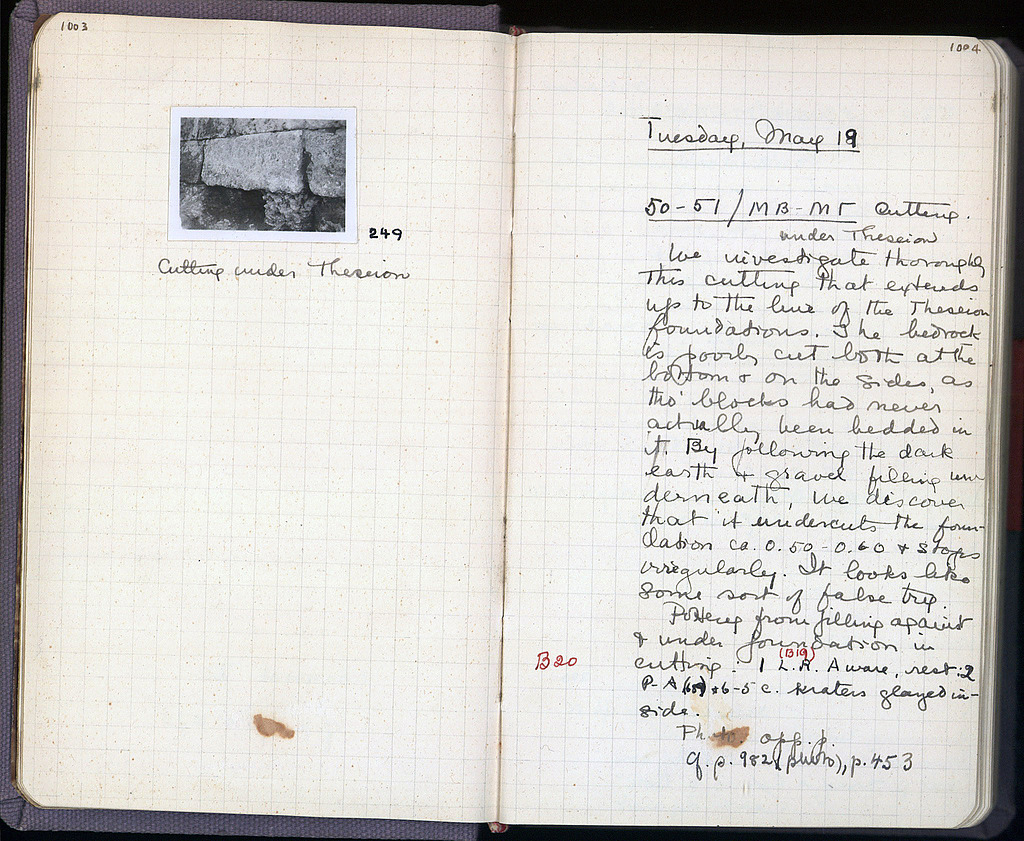 1003
249
Cutting under Theseion
1004
Tuesday, May 19
50-51/ΜΒ-ΜΓ Cutting.
under Theseion
We investigate thoroughly
this cutting that extends
up to the line of the Theseion
foundations. The bedrock
is poorly cut both at the
bottom & on the sides, as
tho' blocks had never
actually been bedded in
it. By following the dark
earth & gravel filling un
derneath, we discover
that it undercuts the foun-
dation ca. 0.50-0.60 & stops
irregularly. It looks like
some sort of false try.
Pottery from filling against
& under foundation in
(B19)
B20 cutting: 1 L.R. A ware, rest:2
P-A & 6-5 c. kraters glazed in-
side.
Photo. opp. p.
cf. p. 982 (photo), p. 453